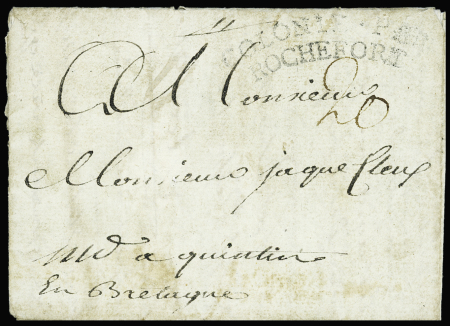 COLONIES PAR
ROCHEFORT
A Monsieur
20
Monsieur jaque
Md a quintin
En Bretagne